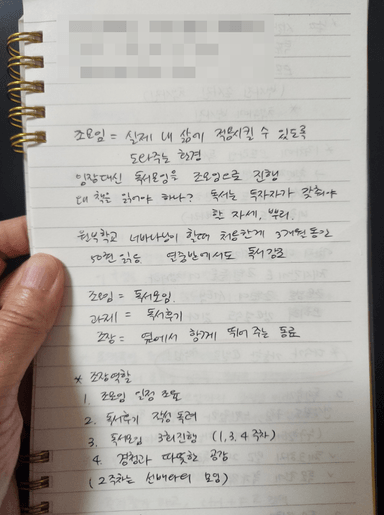 조모임 = 실제 내 삶에 적용시킬 수 있도록
도와주는 환경
임장대신 독서모임을 조모임으로 진행
왜 책을 읽어야 하나? 독서는 투자자가 갖춰야
할 자세, 뿌리.
월부학교 너바나님이 할때 처음한게 3개월동안
50권 읽음 연중반에서도 독서강조
조모임 = 독서모임
과제 = 독서후기
조장 = 옆에서 함께 뛰어 주는 동료
* 조장역할
1. 조모임 일정 조율
2. 독서후기 작성 독려
3. 독서모임 3회진행 (1, 3, 4주차)
4. 경청과 따뜻한 공감
(2주차는 선배와의 모임)